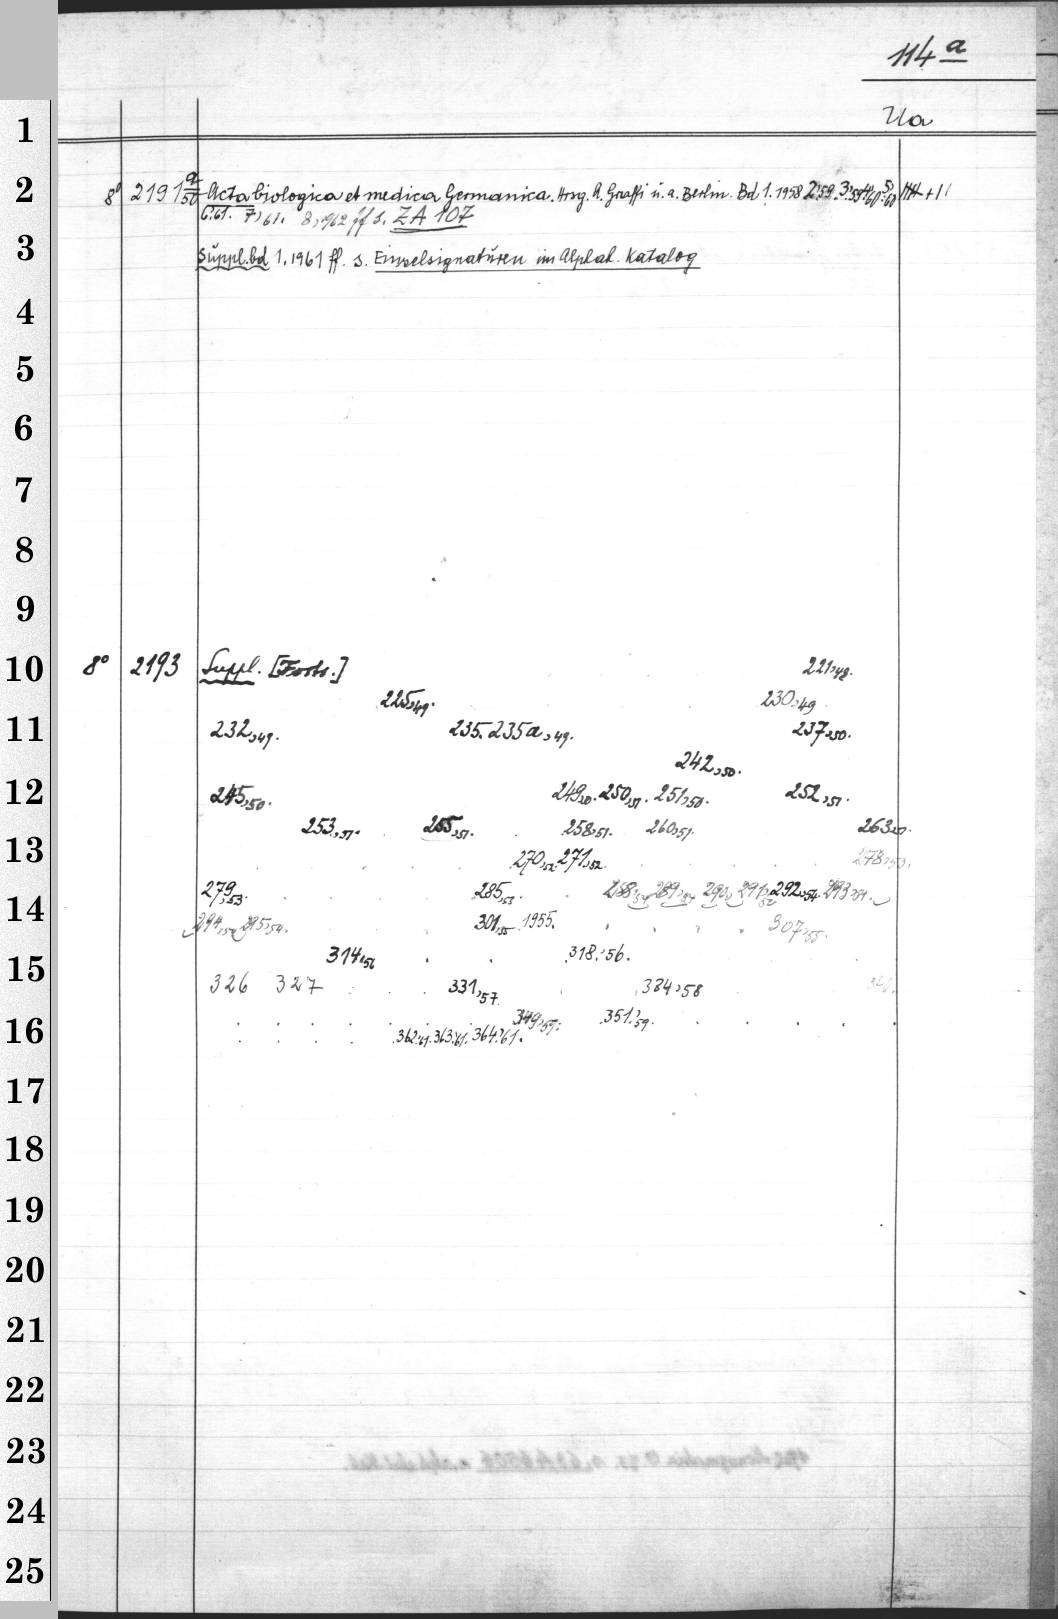 114 a
Ua
1
2 8° 2191 a/50 Acta biologica et medica Germanica. Hrsg. A. Graffi u. a. Berlin. Bd 1. 1958 2,'59. 3,'59
6,'61. 7,'61. 8,1962 ff s. ZA 107
3 Suppl.bd 1.1961 ff. s. Einzelsignaturen im Alphab. Katalog
4
5
6
7
8
9
10 8° 2193 Suppl. [Forts.] 221,48.
225,49. 230,49
11 232,49. 235. 235a,49. 237,50.
242,50.
12 245,50. 249,50. 250,51. 251,50. 252,51.
253,51. 255,51. 258,51. 260,51. 263,51.
13 270,52. 271,52. 278,53.
279,53. 285,53. 288,54 289,54 290, 291,52 292,54. 293,54.
14 294,54 295,54. 301,55 1955. 307,55.
314,56 318.'56.
15 326 327 331,'57 334,58
349,'59. 351.'59.
16 362.'61. 363.'61. 364.'61.
17
18
19
20
21
22
23
24
25